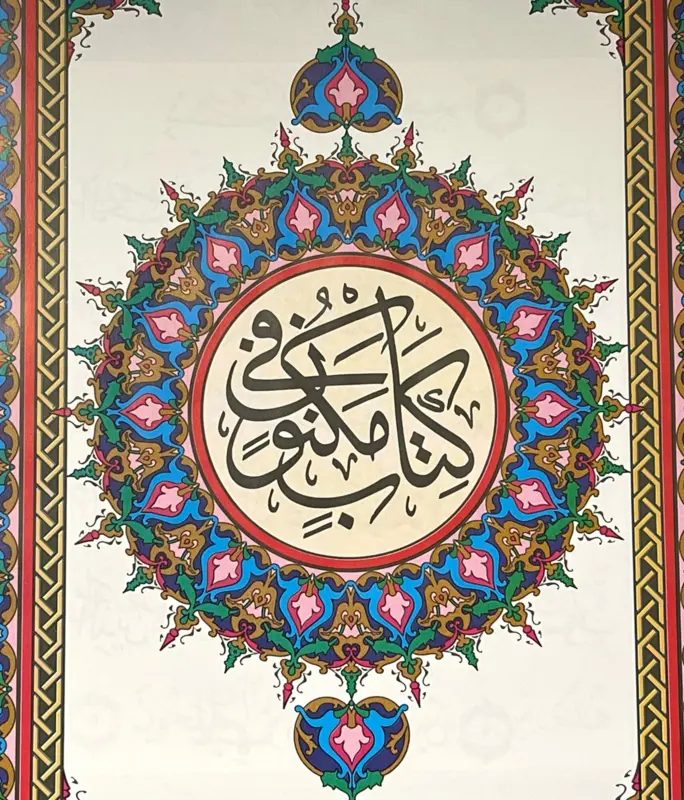 فِي كِتَابٍ مَكْنُونٍ